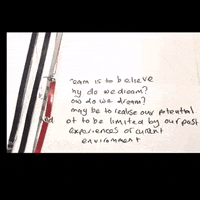 eam is to believe
hy do we dream?
ow do we dream?
may be to realise our potential
ot to be limited by our past
experiences or current
environment